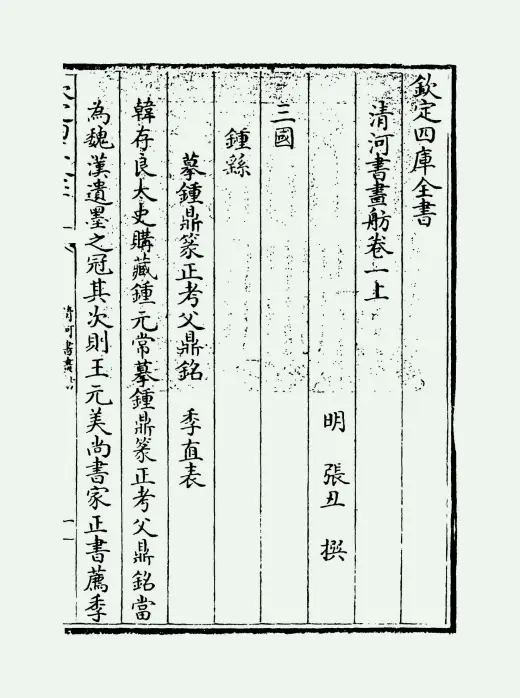 欽定四庫全書
清河書畫舫卷一上
明 張丑 撰
三國
鍾繇
摹鍾鼎篆正考父鼎銘 季直表
韓存良太史購藏鍾元常摹鍾鼎篆正考父鼎銘當
為魏漢遺墨之冠其次則王元美尚書家正書薦季
清河書畫舫
一